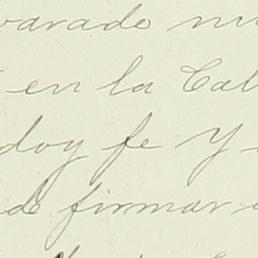 varado
en la Cal
doy fe Y
de firmar